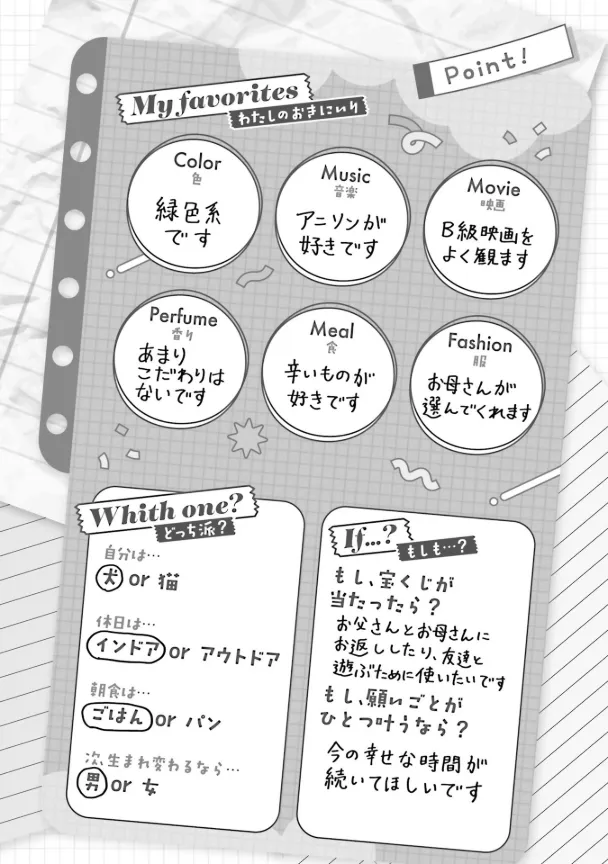 Point!
My favorites
わたしのおきにいり
Color
色
緑色系
です
Music
音楽
アニソンが
好きです
Movie
映画
B級映画を
よく観ます
Perfume
香り
あまり
こだわりは
ないです
Meal
食
辛いものが
好きです
Fashion
服
お母さんが
選んでくれます
Whith one?
どっち派?
自分は…
犬 or 猫
休日は…
インドア or アウトドア
朝食は…
ごはん or パン
次、生まれ変わるなら…
男 or 女
If...?
もしも…?
もし、宝くじが
当たったら?
お父さんとお母さんに
お返ししたり、友達と
遊ぶために使いたいです
もし、願いごとが
ひとつ叶うなら?
今の幸せな時間が
続いてほしいです